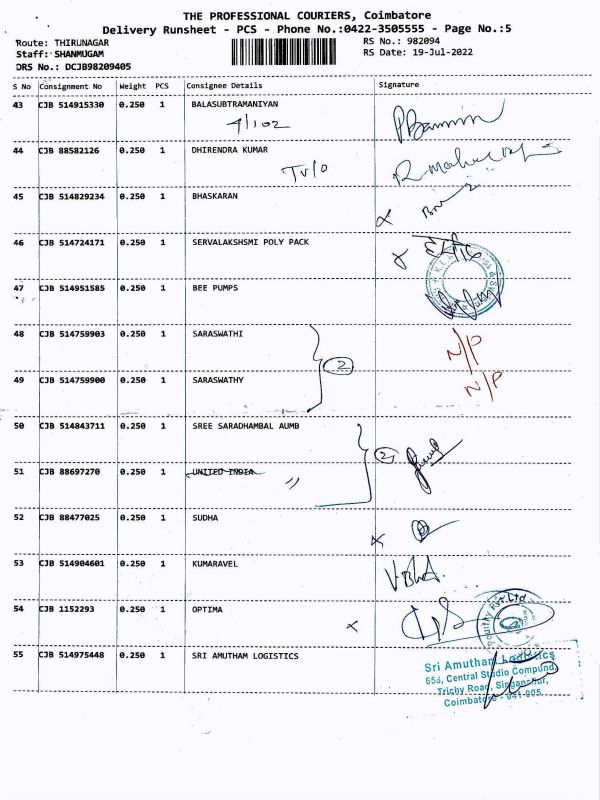 THE PROFESSIONAL COURIERS, Coimbatore
Delivery Runsheet - PCS - Phone No.:0422-3505555 - Page No.:5
Route: THIRUNAGAR RS No.: 982094
Staff: SHANMUGAM RS Date: 19-Jul-2022
DRS No.: DCJB98209405
S No Consignment No Weight PCS Consignee Details Signature
43 CJB 514915330 0.250 1 BALASUBTRAMANIYAN
4/102
44 CJB 88582126 0.250 1 DHIRENDRA KUMAR
45 CJB 514829234 0.250 1 BHASKARAN
46 CJB 514724171 0.250 1 SERVALAKSHSMI POLY PACK
47 CJB 514951585 0.250 1 BEE PUMPS
48 CJB 514759903 0.250 1 SARASWATHI N/P
2
49 CJB 514759900 0.250 1 SARASWATHY N/P
50 CJB 514843711 0.250 1 SREE SARADHAMBAL AUMB
2
51 CJB 88697270 0.250 1 UNITED INDIA "
52 CJB 88477025 0.250 1 SUDHA
53 CJB 514904601 0.250 1 KUMARAVEL
54 CJB 1152293 0.250 1 OPTIMA
55 CJB 514975448 0.250 1 SRI AMUTHAM LOGISTICS
Sri Amutham Logistics
656, Central Studio Compund,
Trichy Road, Singanallur,
Coimbatore - 641 005.